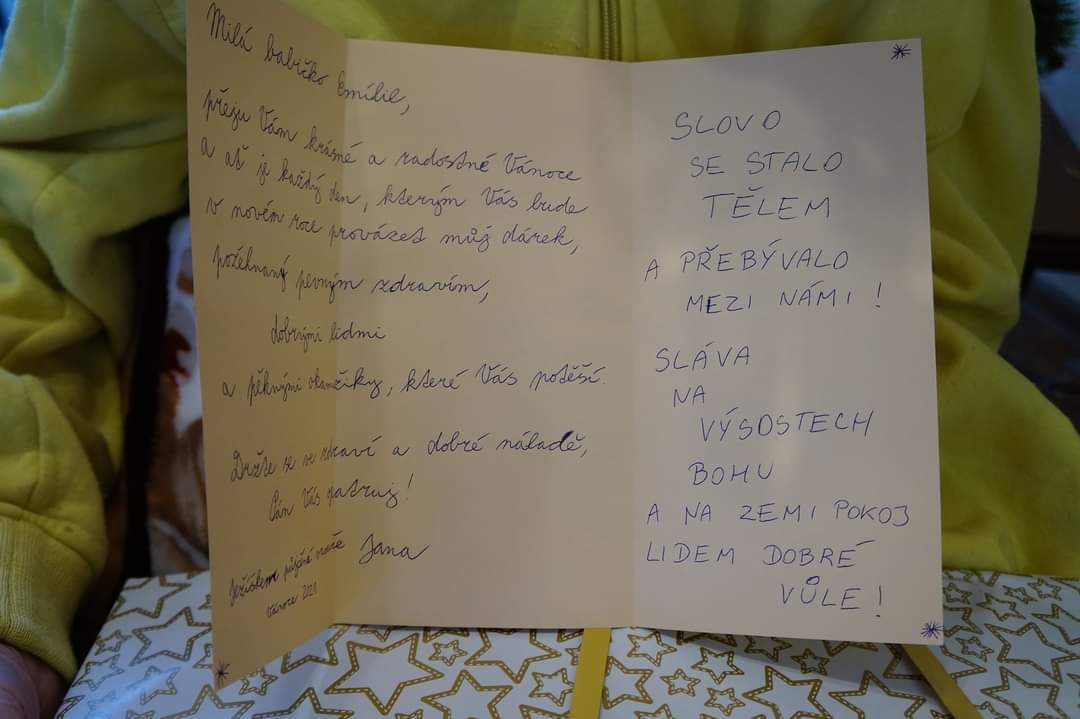 Milá babičko Emílie,
přeju Vám krásné a radostné Vánoce
a ať je každý den, kterým Vás bude
v novém roce provázet můj dárek,
požehnaný pevným zdravím,
dobrými lidmi
a pěknými okamžiky, které Vás potěší.
Držte se ve zdraví a dobré náladě,
Pán Vás opatruj!
Ježíškem
Jana
Vánoce 2021
SLOVO
SE STALO
TĚLEM
A PŘEBÝVALO
MEZI NÁMI!
SLÁVA
NA
VÝSOSTECH
BOHU
A NA ZEMI POKOJ
LIDEM DOBRÉ
VŮLE!